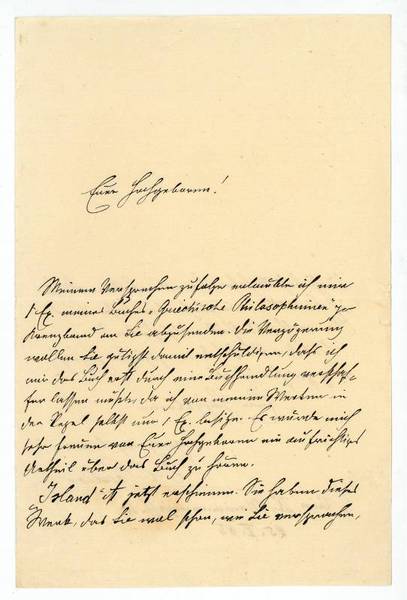 Euer Hochgeboren!
Meinem Versprechen zufolge erlaubte ich mir
1 Ex. meines Buches „Griechische Philosophinnen" p.
Kreuzband an Sie abzusenden. Die Verzögerung
wollen Sie gütigst damit entschuldigen, daß ich
mir das Buch erst durch eine Buchhandlung verschaf-
fen lassen mußte, da ich von meinen Werken in
der Regel selbst nur 1 Ex. besitze. Es würde mich
sehr freuen von Euer Hochgeboren ein aufrichtiges
Urtheil über das Buch zu hören.
„Island" ist jetzt erschienen. Sie haben dieses
Werk, das Sie wol schon, wie Sie versprachen,